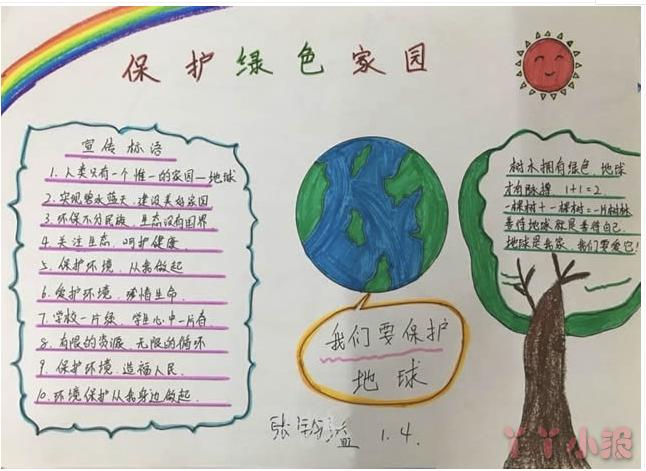 保护绿色家园
宣传标语
1. 人类只有一个惟一的家园—地球
2. 实现碧水蓝天,建设美好家园
3. 环保不分民族,生态没有国界
4. 关注生态,呵护健康
5. 保护环境,从我做起
6. 爱护环境,珍惜生命.
7. 学校一片绿,学生心中一片春
8. 有限的资源,无限的循环
9. 保护环境,造福人民.
10. 环境保护从我身边做起.
我们要保护
地球
树木拥有绿色,地球
才有脉搏 1+1=2
一棵树+一棵树=一片树林
善待地球就是善待自己.
地球是我家,我们要爱它!
张 1.4.
丫丫小报